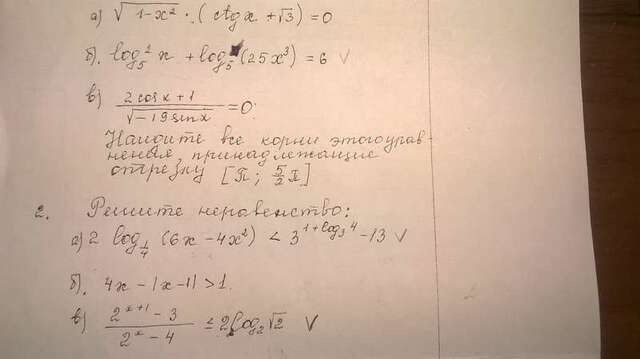 а) √(1-x²) · (ctgx + √3) = 0
б). log₅² x + log₅ (25x³) = 6 V
в) (2cosx + 1)/√(-19sinx) = 0.
Найдите все корни этого урав-
нения, принадлежащие
отрезку [π; 5/2 π]
2. Решите неравенство:
а) 2 log_{1/4} (6x - 4x²) < 3^{1+log₃4} - 13 V
б). 4x - |x-1| > 1.
в) (2^{x+1} - 3)/(2^x - 4) ≤ 2log₂√2 V